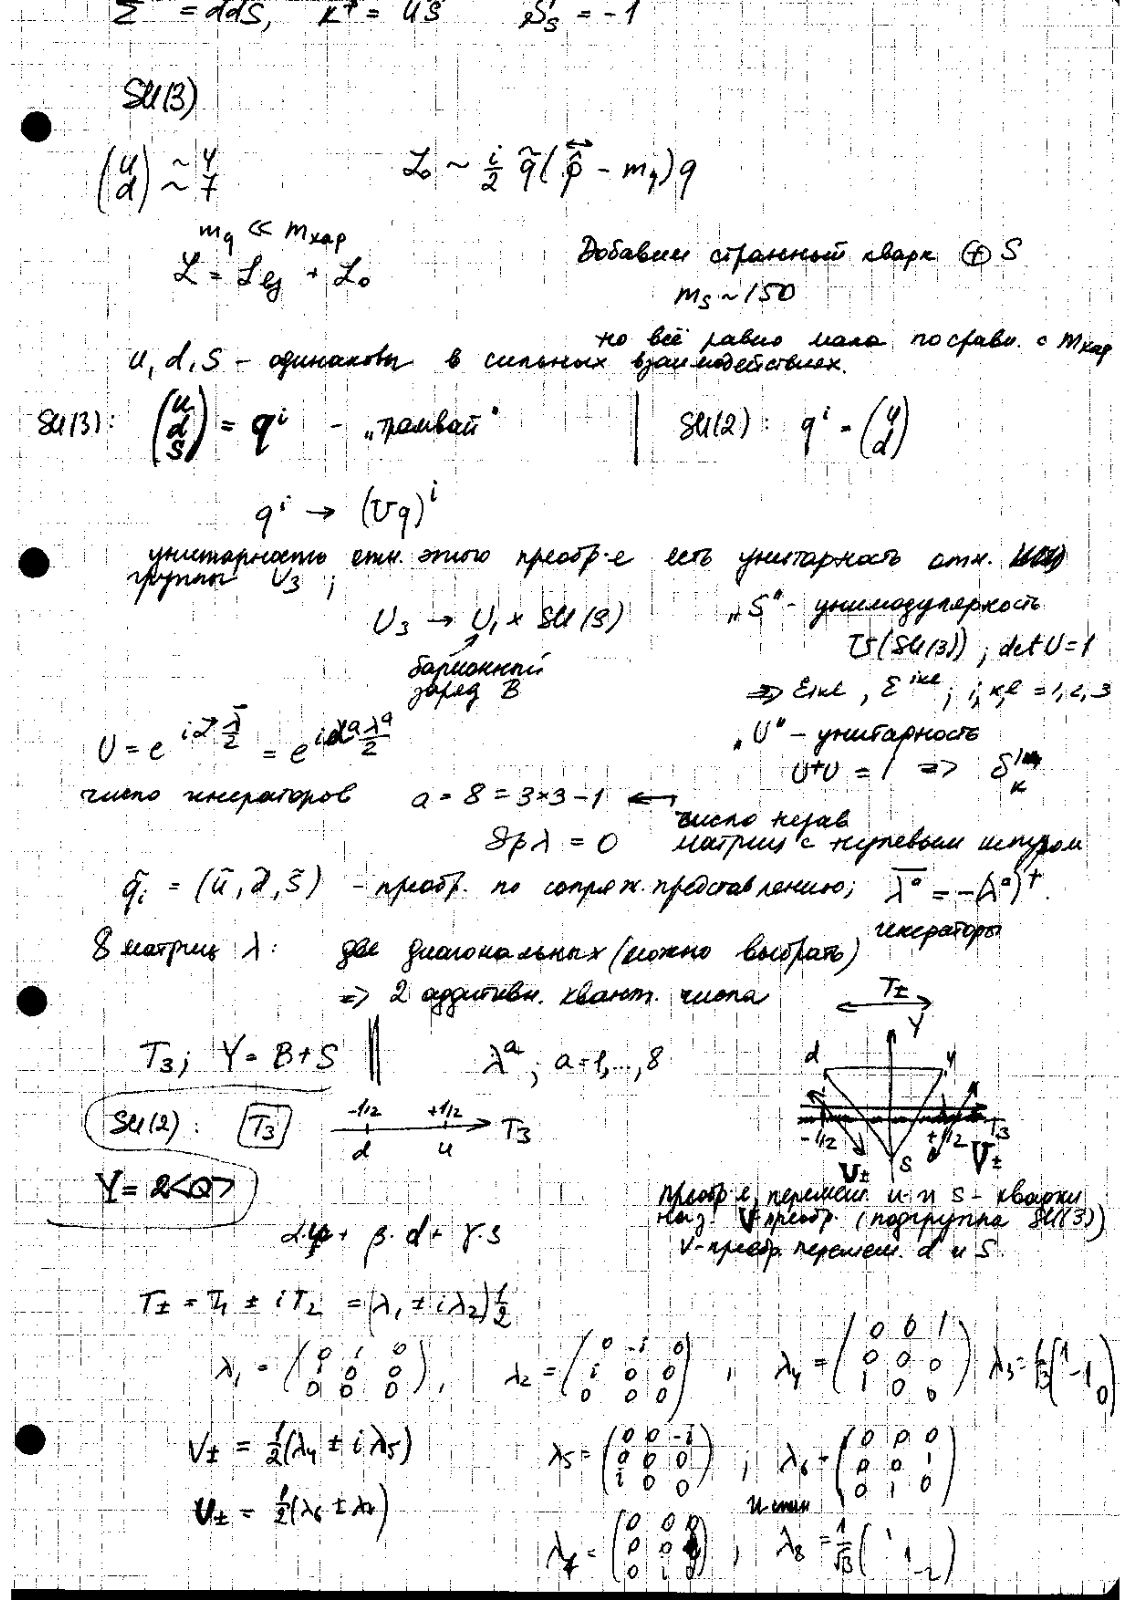 Σ⁻ = dds, K⁺ = u s̄   S_s = -1
SU(3)
(u d) ~4 ~7   ℒ₀ ~ i/2 q̃(p̂ - m_q)q
m_q << m_хар
ℒ = ℒ_вз + ℒ₀   Добавим странный кварк ⊕ S
m_s ~ 150
но всё равно мала по сравн. с m_хар
u, d, s – одинаковы в сильных взаимодействиях.
SU(3): (u d s) = qⁱ – „трамвай“ | SU(2): qⁱ = (u d)
qⁱ → (Uq)ⁱ
унитарность отн. этого преобр-е есть унитарность отн.
группы U₃;
„S“ - унимодулярность
U₃ → U₁ × SU(3)
U(SU(3)), det U = 1
барионный
заряд B
=> ε_ikl, ε^ikl; i,k,l = 1,2,3
„U“ – унитарность
U = e^{i α⃗ λ⃗/2} = e^{i α^a λ^a/2}
U⁺U = 1 => δ_k
число генераторов a = 8 = 3×3-1 ←
число незав
Sp λ = 0 матриц с нулевым шпуром
q̄_i = (ū, d̄, s̄) – преобр. по сопряж. представлению; λ̄^a = -(λ^a)⁺.
генераторы
8 матриц λ: две диагональных (можно выбрать)
=> 2 аддитивн. квант. числа
T±
Y
T₃; Y = B+S || λ^a; a=1,...,8
d u
SU(2): T₃ -1/2 +1/2 T₃
d u
-1/2 +1/2 T₃
U± S V±
Y = 2<Q>
преобр-е, перемеш. u и s – кварки
наз. V преобр. (подгруппа SU(3))
α·u + β·d + γ·s
V-преобр. перемеш. d и s.
T± = T₁ ± iT₂ = (λ₁ ± iλ₂)1/2
λ₁ = (0 1 0 / 1 0 0 / 0 0 0), λ₂ = (0 -i 0 / i 0 0 / 0 0 0), λ₄ = (0 0 1 / 0 0 0 / 1 0 0) λ₃ = (1 -1 0)
V± = 1/2(λ₄ ± iλ₅)   λ₅ = (0 0 -i / 0 0 0 / i 0 0); λ₆ = (0 0 0 / 0 0 1 / 0 1 0)
U± = 1/2(λ₆ ± λ₇)
λ₇ = (0 0 0 / 0 0 / 0 i 0); λ₈ = 1/√3 (1 1 -2)